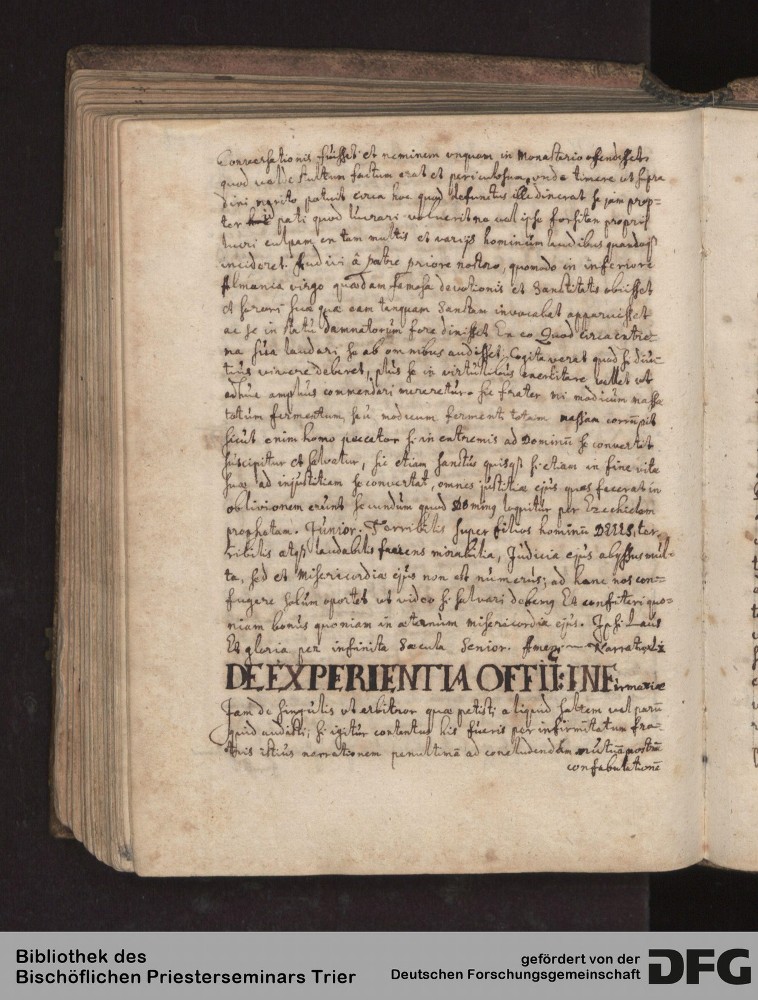 Conversationis fuisset et neminem unquam in Monasterio offendisset,
quod valde stultum factum erat et periculosum, unde timere ut supra
dixi merito potuit circa hoc quod defunctus ille dixerat se jam prop=
ter pati quod lucrari voluerit na vel ipse forsitan proprij
lucri culpam, ex tam multis et varijs hominum laudibus quandoqz
incideret. Audivi â patre priore nostro, quomodo in inferiore
Almania virgo quaedam famosa devotionis et Sanctitatis obiisset
et sorori suae quae eam tanquam Sanctam invocabat apparuisset
ac se in statu damnatorum fore dixisset Ex eo Quod circa extre=
ma sua laudari se ab omnibus audisset, Cogitaverat quod si diu=
tius vivere deberet, plus se in virtutibus exercitare vellet ut
adhuc amplius commendari mereretur. Sic frater mi modicum massa
totum fermentum, seu modicum fermenti totam massam corrupit
sicut enim homo peccator si in extremis ad Dominū se convertit
suscipitur et salvatur, sic etiam sanctus quisqz si etiam in fine vitae
suae ad injustitiam se convertat, omnes justitiae ejus quas fecerat in
oblivionem erunt secundum quod Doming loquitur per Ezechielem
prophetam. Junior. Terribilis super filios hominū DEUS, ter=
ribilis atqz laudabilis faciens mirabilia, Judicia ejus abyssus mul=
ta, sed et Misericordiae ejus non est numerus; ad hanc nos con=
fugere solum oportet ut video si salvari debeng Et confiteri quo=
niam bonus quoniam in aeternum misericordia ejus. Ipsi Laus
Et gloria per infinita Saecula Senior. Amen. Narratio
DE EXPERIENTIA OFFITI: INFirmariae
Jam de singulis ut arbitror quae petisti; aliquid saltem vel parū
quid audisti; si igitur contentus his fueris per infirmitatum fra=
tris istius narrationem penultimā ad concludendam nostrā
confabulationē
Bibliothek des
Bischöflichen Priesterseminars Trier
gefördert von der
Deutschen Forschungsgemeinschaft
DFG